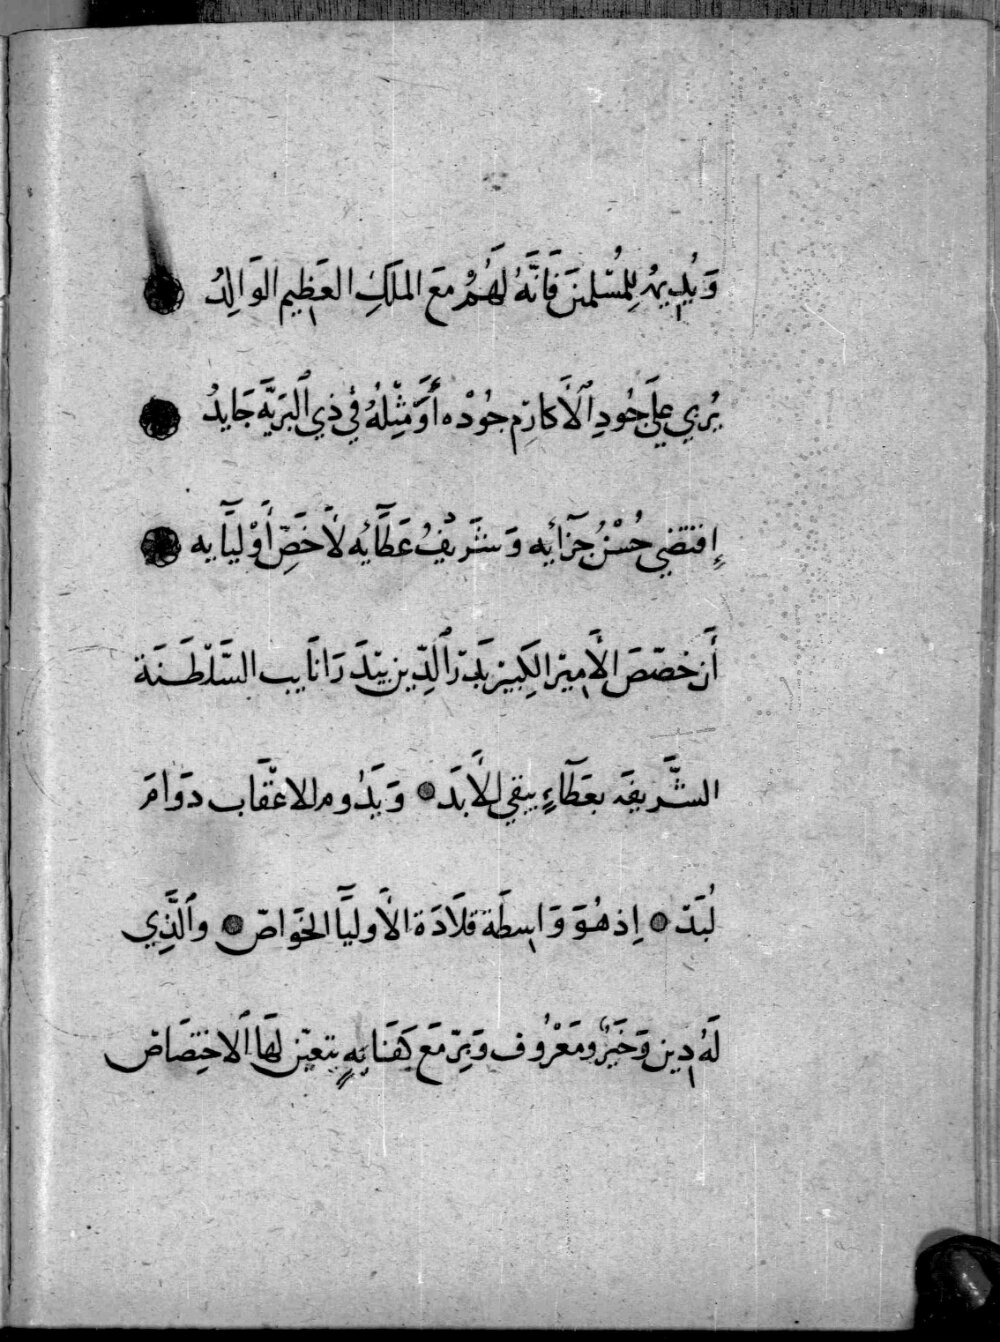 وَيُدِيمُهُ لِلمُسْلِمينَ فَإنَّهُ لَهُمُ مَعَ المَلَكِ العَظِيمِ الوَالِدُ
يُزرِي عَلَى جُودِ ٱلأَكارِم جُوْدُه أَوَمِثْلُهُ في ذِي ٱلبَرِيَّه جَايِدُ
إِقتضي حُسْنُ جَزَآئِه وَشَريْفُ عَطَآيِه لأَخَصِّ أَوْليَآيه
أَن خصّصَ الأَمِيرَ الكَبِيرَ بَدْرَ ٱلدِّين بيْدَرَا نَايب السَّلْطَنَة
الشَّريفَة بعَطَآءٍ يبقي للأَبَدَ وَيَدُوم للاعْقَاب دَوَامَ
لُبَدْ إِذ هُوَ وَاسِطَة قلَادَة الأَوليَآ الخَوَاصّ وٱلَّذِي
لَهُ دِين وَخَيْرٌ ومَعْرُوف وَبِرّ مَعَ كَفَايَةٍ يتعيّن لهَا ٱلاختِصَاصْ